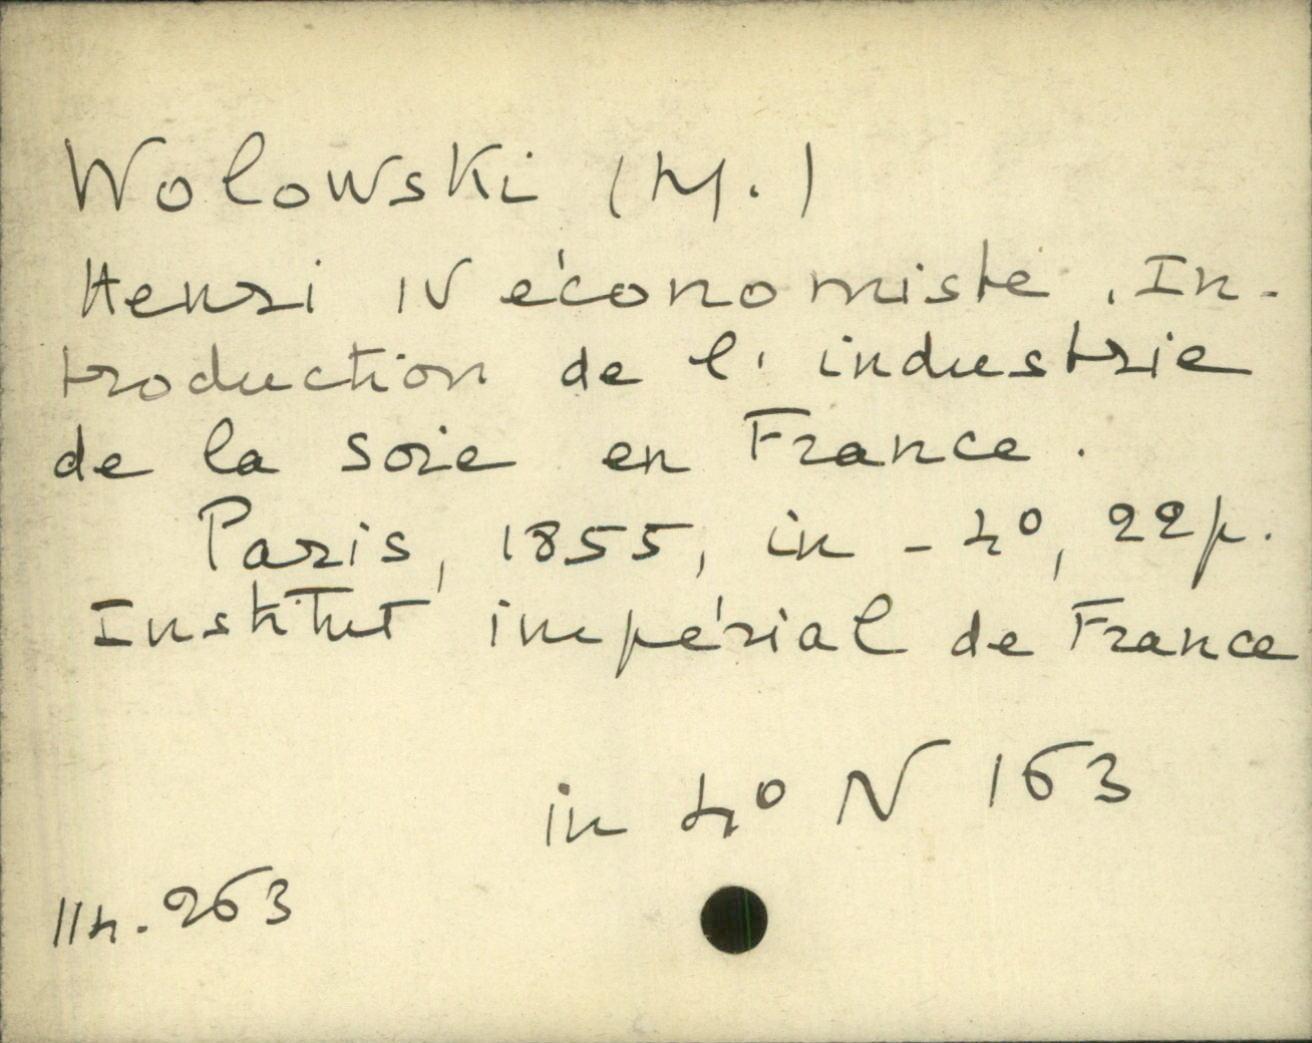 Wolowski (M.)
Henri IV économiste. In-
troduction de l'industrie
de la soie en France.
Paris, 1855, in-4°, 22 p.
Institut impérial de France
in 4° N 163
114.263